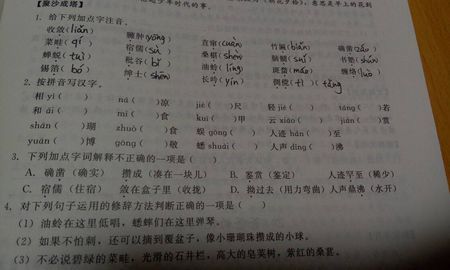 少年时代的事。
【聚沙成塔】 意思是早上的花到
1. 给下列加点字注音。
收敛(liǎn) 臃肿(yōng) 直窜(cuàn) 竹匾(biǎn) 确凿(záo)
菜畦(qí) 宿儒(sù) 桑椹(shèn) 脑髓(suǐ) 书塾(shú)
蝉蜕(tuì) 秕谷(bǐ) 油蛉(líng) 斑蝥(máo) 缠络(luò)
锡箔(bó) 绅士(shēn) 长吟(yín) 倜傥(tì)(tǎng)
2. 按拼音写汉字。
相yí( ) ná( )凉 jiè( )尺 轻jié( ) tǎng( )若
和ǎi( ) mì( )食 kuī( )甲 云xiāo( ) jiàn( )赏
shān( )瑚 zhuó( )食 蜈gōng( ) 人迹hǎn( )至
yuān( )博 gōng( )敬 蟋shuài( ) 人声dǐng( )沸
3. 下列加点字词解释不正确的一项是( )
A. 确凿(确实) 攒成(凑在一块儿) B. 鉴赏(鉴定) 人迹罕至(稀少)
C. 宿儒(住宿) 敛在盒子里(收拢) D. 拗过去(用力弯曲)人声鼎沸(水开)
4. 对下列句子运用的修辞方法判断正确的一项是( )
(1) 油蛉在这里低唱,蟋蟀们在这里弹琴。
(2) 如果不怕刺,还可以摘到覆盆子,像小珊瑚珠攒成的小球。
(3) 不必说碧绿的菜畦,光滑的石井栏,高大的皂荚树,紫红的桑葚。